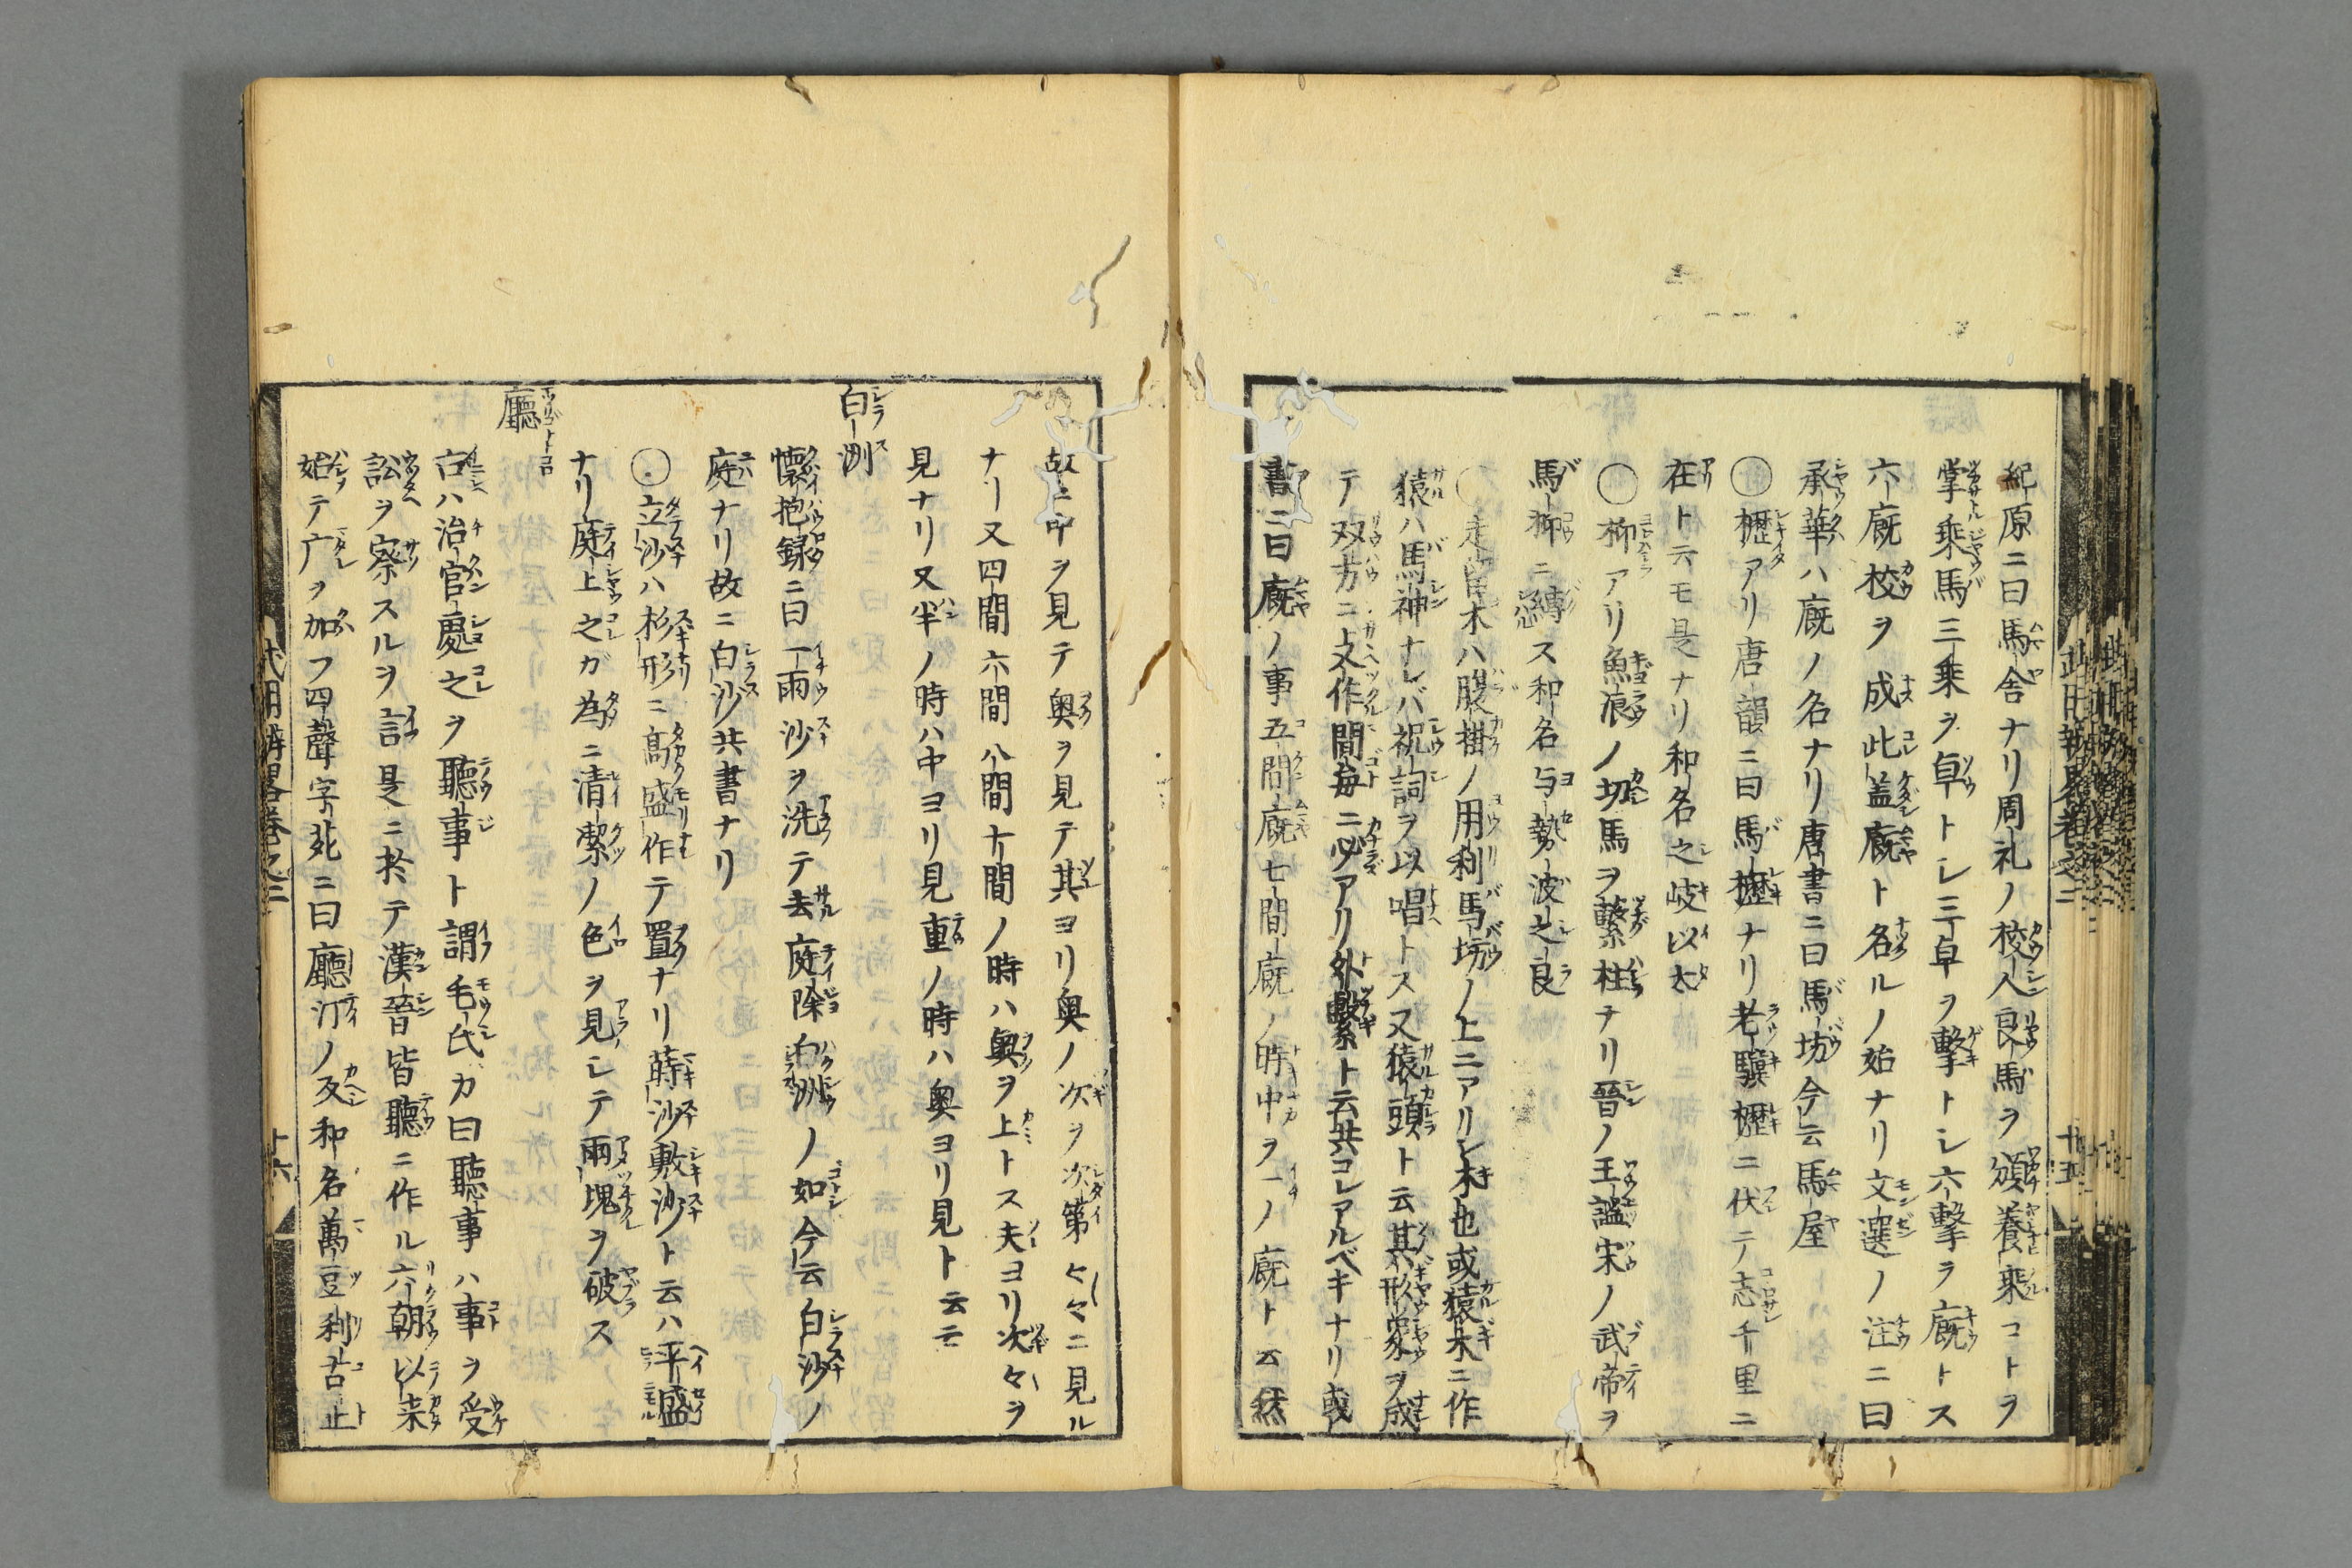 紀原ニ曰馬舎ナリ周礼ノ校人良馬ヲ頒養乗コトヲ
掌乗馬三乗ヲ皁トシ三皁ヲ撃トシ六撃ヲ廐トス
六廐校ヲ成此蓋廐ト名ルノ始ナリ文選ノ注ニ曰
承華ハ廐ノ名ナリ唐書ニ曰馬坊今云馬屋
○櫪アリ唐韻ニ曰馬櫪ナリ老驥櫪ニ伏テ志千里ニ
在ト云モ是ナリ和名之岐以太
○枊アリ鮑浪ノ切馬ヲ繋柱ナリ晉ノ王謐宋ノ武帝ヲ
馬枊ニ縛ス和名与勢波之良
木ハ腹掛ノ用利馬坊ノ上ニアリシ木也或猿木ニ作
猿ハ馬神ナレバ祝詞ヲ以唱トス又猿頭ト云其形象ヲ成
テ双方ニ上文作間毎ニ必アリ外繋ト云共コレアルベキナリ或
書ニ曰廐ノ事五間廐七間廐ノ時中ヲ一ノ廐ト云然
故ニ印ヲ見テ奥ヲ見テ其ヨリ奥ノ次ヲ次第々々ニ見ル
ナリ又四間六間八間十間ノ時ハ奥ヲ上トス夫ヨリ次々ヲ
見ナリ又半ノ時ハ中ヨリ見重ノ時ハ奥ヨリ見ト云云
白洲
懐抱録ニ曰一雨沙ヲ洗テ去庭除白洲ノ如今云白沙ノ
庭ナリ故ニ白沙共書ナリ
○立沙ハ杉形ニ高盛作テ置ナリ蒔沙敷沙ト云ハ平盛
ナリ庭上之ガ為ニ清潔ノ色ヲ見シテ雨塊ヲ破ス
廳
古ハ治官處之ヲ聽事ト謂毛氏カ曰聽事ハ事ヲ受
訟ヲ察スルヲ言是ニ於テ漢晉皆聽ニ作ル六朝以来
始テ广ヲ加フ四聲字苑ニ曰廳汀ノ反和名萬豆利古止